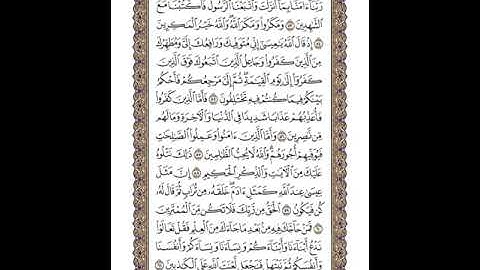 رَبَّنَآ ءَامَنَّا بِمَآ أَنزَلْتَ وَٱتَّبَعْنَا ٱلرَّسُولَ فَٱكْتُبْنَا مَعَ
ٱلشَّٰهِدِينَ ٥٣ وَمَكَرُوا۟ وَمَكَرَ ٱللَّهُ وَٱللَّهُ خَيْرُ ٱلْمَٰكِرِينَ
٥٤ إِذْ قَالَ ٱللَّهُ يَٰعِيسَىٰٓ إِنِّى مُتَوَفِّيكَ وَرَافِعُكَ إِلَىَّ وَمُطَهِّرُكَ
مِنَ ٱلَّذِينَ كَفَرُوا۟ وَجَاعِلُ ٱلَّذِينَ ٱتَّبَعُوكَ فَوْقَ ٱلَّذِينَ
كَفَرُوٓا۟ إِلَىٰ يَوْمِ ٱلْقِيَٰمَةِ ثُمَّ إِلَىَّ مَرْجِعُكُمْ فَأَحْكُمُ
بَيْنَكُمْ فِيمَا كُنتُمْ فِيهِ تَخْتَلِفُونَ ٥٥ فَأَمَّا ٱلَّذِينَ كَفَرُوا۟
فَأُعَذِّبُهُمْ عَذَابًا شَدِيدًا فِى ٱلدُّنْيَا وَٱلْءَاخِرَةِ وَمَا لَهُم
مِّن نَّٰصِرِينَ ٥٦ وَأَمَّا ٱلَّذِينَ ءَامَنُوا۟ وَعَمِلُوا۟ ٱلصَّٰلِحَٰتِ
فَيُوَفِّيهِمْ أُجُورَهُمْ وَٱللَّهُ لَا يُحِبُّ ٱلظَّٰلِمِينَ ٥٧ ذَٰلِكَ نَتْلُوهُ
عَلَيْكَ مِنَ ٱلْءَايَٰتِ وَٱلذِّكْرِ ٱلْحَكِيمِ ٥٨ إِنَّ مَثَلَ
عِيسَىٰ عِندَ ٱللَّهِ كَمَثَلِ ءَادَمَ خَلَقَهُۥ مِن تُرَابٍ ثُمَّ قَالَ لَهُۥ
كُن فَيَكُونُ ٥٩ ٱلْحَقُّ مِن رَّبِّكَ فَلَا تَكُن مِّنَ ٱلْمُمْتَرِينَ
٦٠ فَمَنْ حَآجَّكَ فِيهِ مِنۢ بَعْدِ مَا جَآءَكَ مِنَ ٱلْعِلْمِ فَقُلْ تَعَالَوْا۟
نَدْعُ أَبْنَآءَنَا وَأَبْنَآءَكُمْ وَنِسَآءَنَا وَنِسَآءَكُمْ وَأَنفُسَنَا
وَأَنفُسَكُمْ ثُمَّ نَبْتَهِلْ فَنَجْعَل لَّعْنَتَ ٱللَّهِ عَلَى ٱلْكَٰذِبِينَ ٦١